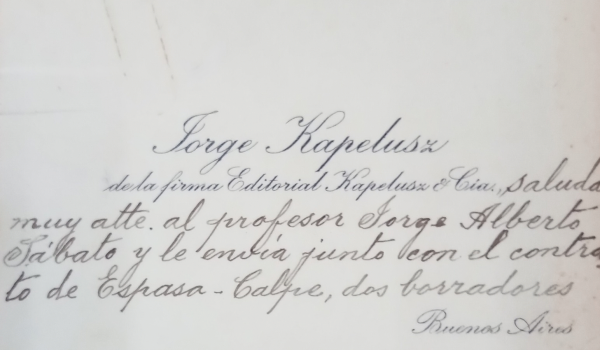 Jorge Kapelusz
de la firma Editorial Kapelusz & Cia., saluda
muy atte. al profesor Jorge Alberto
Sábato y le envía junto con el contra
to de Espasa-Calpe, dos borradores
Buenos Aires